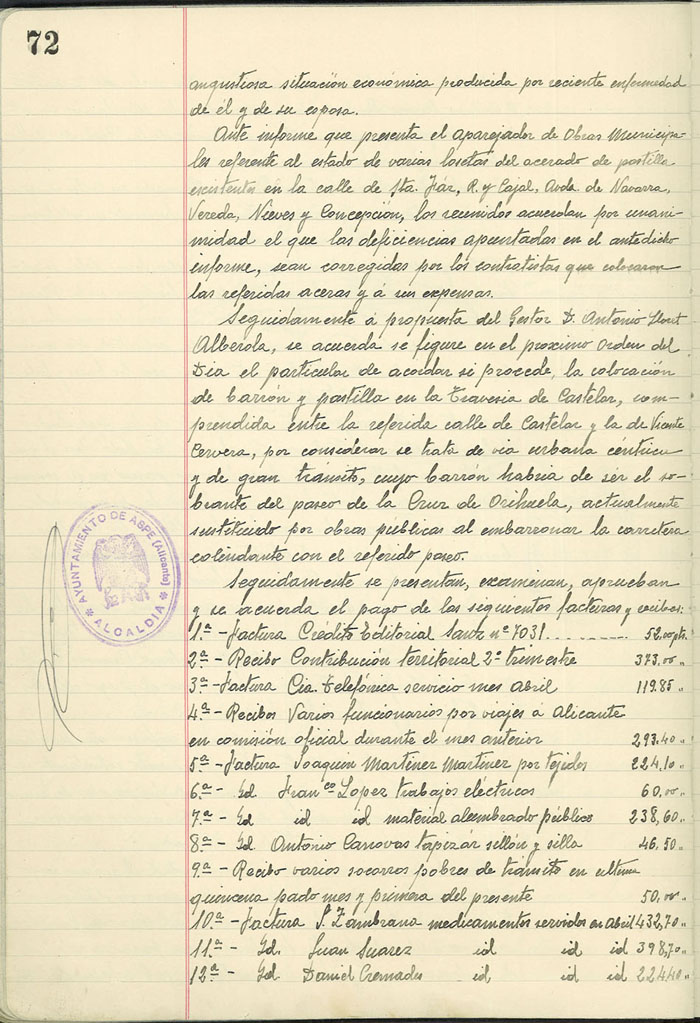 72
angustiosa situación económica producida por reciente enfermedad
de él y de su esposa.
Ante informe que presenta el aparejador de Obras Municipa-
les referente al estado de varias losetas del acerado de pastilla
existentes en la calle de Sta. Fáz, R. y Cajal, Avda. de Navarra,
Vereda, Nieves y Concepción, los reunidos acuerdan por unani-
midad el que las deficiencias apuntadas en el antedicho
informe, sean corregidas por los contratistas que colocaron
las referidas aceras y á sus expensas.
Seguidamente á propuesta del Gestor D. Antonio Lloret
Alberola, se acuerda se figure en el proximo Orden del
Dia el particular de acordar si procede, la colocación
de barrón y pastilla en la travesia de Castelar, com-
prendida entre la referida calle de Castelar y la de Vicente
Cervera, por considerar se trata de via urbana céntrica
y de gran tránsito, cuyo barrón habria de sér el so-
brante del paseo de la Cruz de Orihuela, actualmente
sustituido por obras públicas al embarronar la carretera
colindante con el referido paseo.
Seguidamente se presentan, examinan, aprueban
y se acuerda el pago de las siguientes facturas y recibos:
1.ª - Factura Crédito Editorial Sanz nº 7031 ........ 52.00 pts.
2.ª - Recibo Contribución territorial 2º trimestre 373.00 "
3.ª - Factura Cia. Telefónica servicio mes Abril 119.85 "
4.ª - Recibos Varios funcionarios por viajes á Alicante
en comisión oficial durante el mes anterior 293.40 "
5.ª - Factura Joaquin Martinez Martinez por tejidos 224.10 "
6.ª - Id Fran.co Lopez trabajos eléctricos 60.00 "
7.ª - Id id id material alumbrado público 238,60 "
8.ª - Id. Antonio Canovas tapizár sillón y silla 46.50 "
9.ª - Recibo varios socorros pobres de tránsito en ultima
quincena pado mes y primera del presente 50.00 "
10.ª - Factura S. Zambrana medicamentos servidos en Abril 432,70 "
11.ª - Id. Juan Suarez id id id 398,70 "
12ª - Id Daniel Cremades id id id 224,40 "
AYUNTAMIENTO DE ASPE (Alicante)
* ALCALDIA *